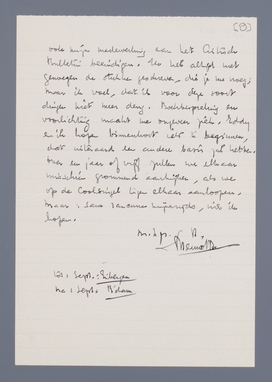 (8)
voor mijn medewerking aan het
Bulletin beëindigen. Ik heb altijd met
genoegen de stukjes geschreven, die je me vroeg;
maar ik voel, dat ik voor deze soort
dingen niet meer deug. Boekbespreking en
voorlichting maakt me ongeveer ziek.
en ik hopen binnenkort iets te beginnen,
dat uiteraard een andere basis zal hebben.
Over een jaar of vijf zullen we elkaar
misschien grommend aankijken, als we
op de Coolsingel tegen elkaar aanlopen.
Maar: sans rancune, naar ik
hoop.
tot 1 Sept.:
na 1 Sept.: R'dam